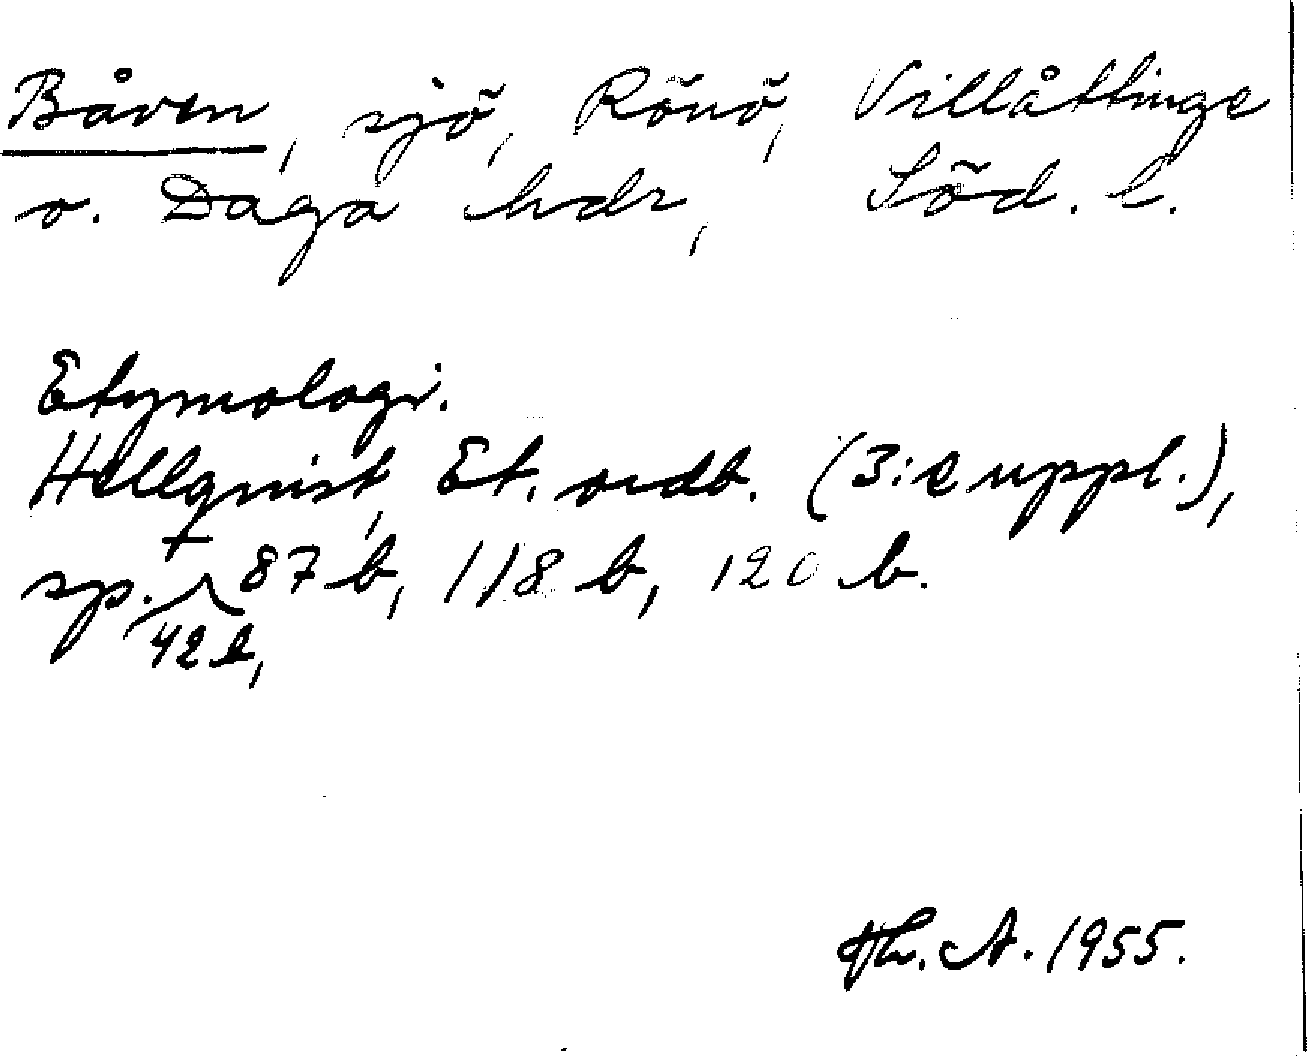 Båven, sjö, Rönö, Villåttinge
o. Daga hdr, Söd. l.
Etymologi.
Hellquist, Et. ordb. (3:e uppl.),
sp. 87 b, 118 b, 120 b.
42 b,
Th. A. 1955.